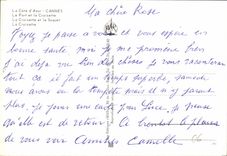 La Côte d'Azur - CANNES
Le Port et la Croisette
La Croisette et le Suquet
La Croisette
Ma chère Rose
Voyez je pense à vous et vous espère en
bonne santé moi je me promène bien
j'ai déjà vu bien des choses je vous raconterai
tout ça il fait un temps superbe, samedi
nous avons eu la tempête mais il n'y avait
plus. je joins une carte pour Luce, je pense
qu'elle est de retour.
de vous voir Amitiés Camille